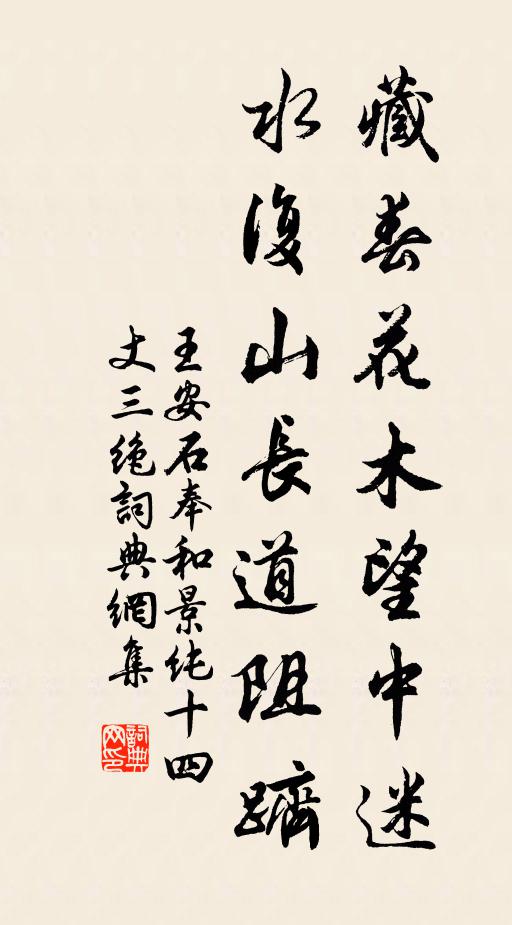 藏春花木望中迷
水復山長道阻躋
王安石奉和景純十四
丈三絶詞典網集
詞典
网印